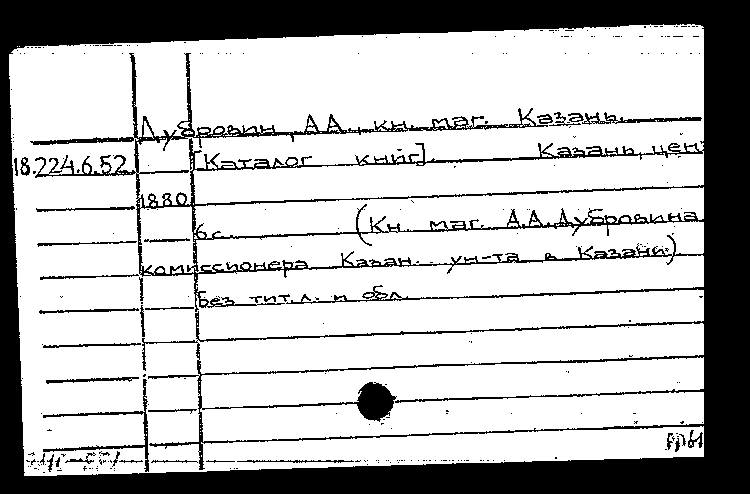 Дубровин, А.А., кн. маг. Казань.
18.224.6.52 [Каталог книг]. Казань, ценз
1880
6 с. (Кн. маг. А.А. Дубровина
комиссионера Казан. ун-та в Казани)
Без тит. л. и обл.